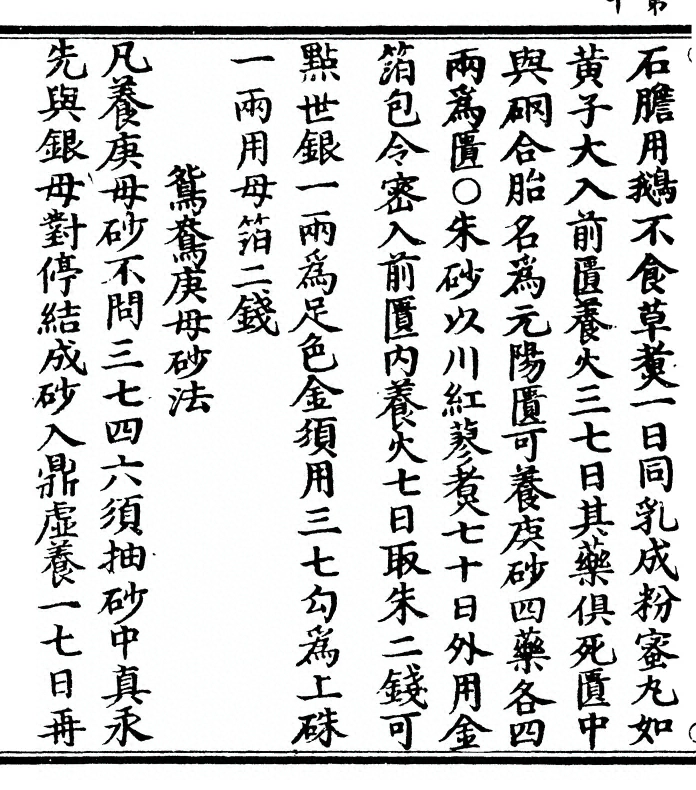 石膽用鵝不食草煑一日同乳成粉蜜丸如
黄子大入前匱養火三七日其藥俱死匱中
與硇合胎名爲元陽匱可養庚砂四藥各四
兩爲匱〇朱砂以川紅蓼煑七十日外用金
箔包令密入前匱内養火七日取朱二錢可
點世銀一兩爲足色金須用三七勾爲上硃
一兩用母箔二錢
鴛鴦庚母砂法
凡養庚母砂不問三七四六須抽砂中真汞
先與銀母對停結成砂入鼎虚養一七日再